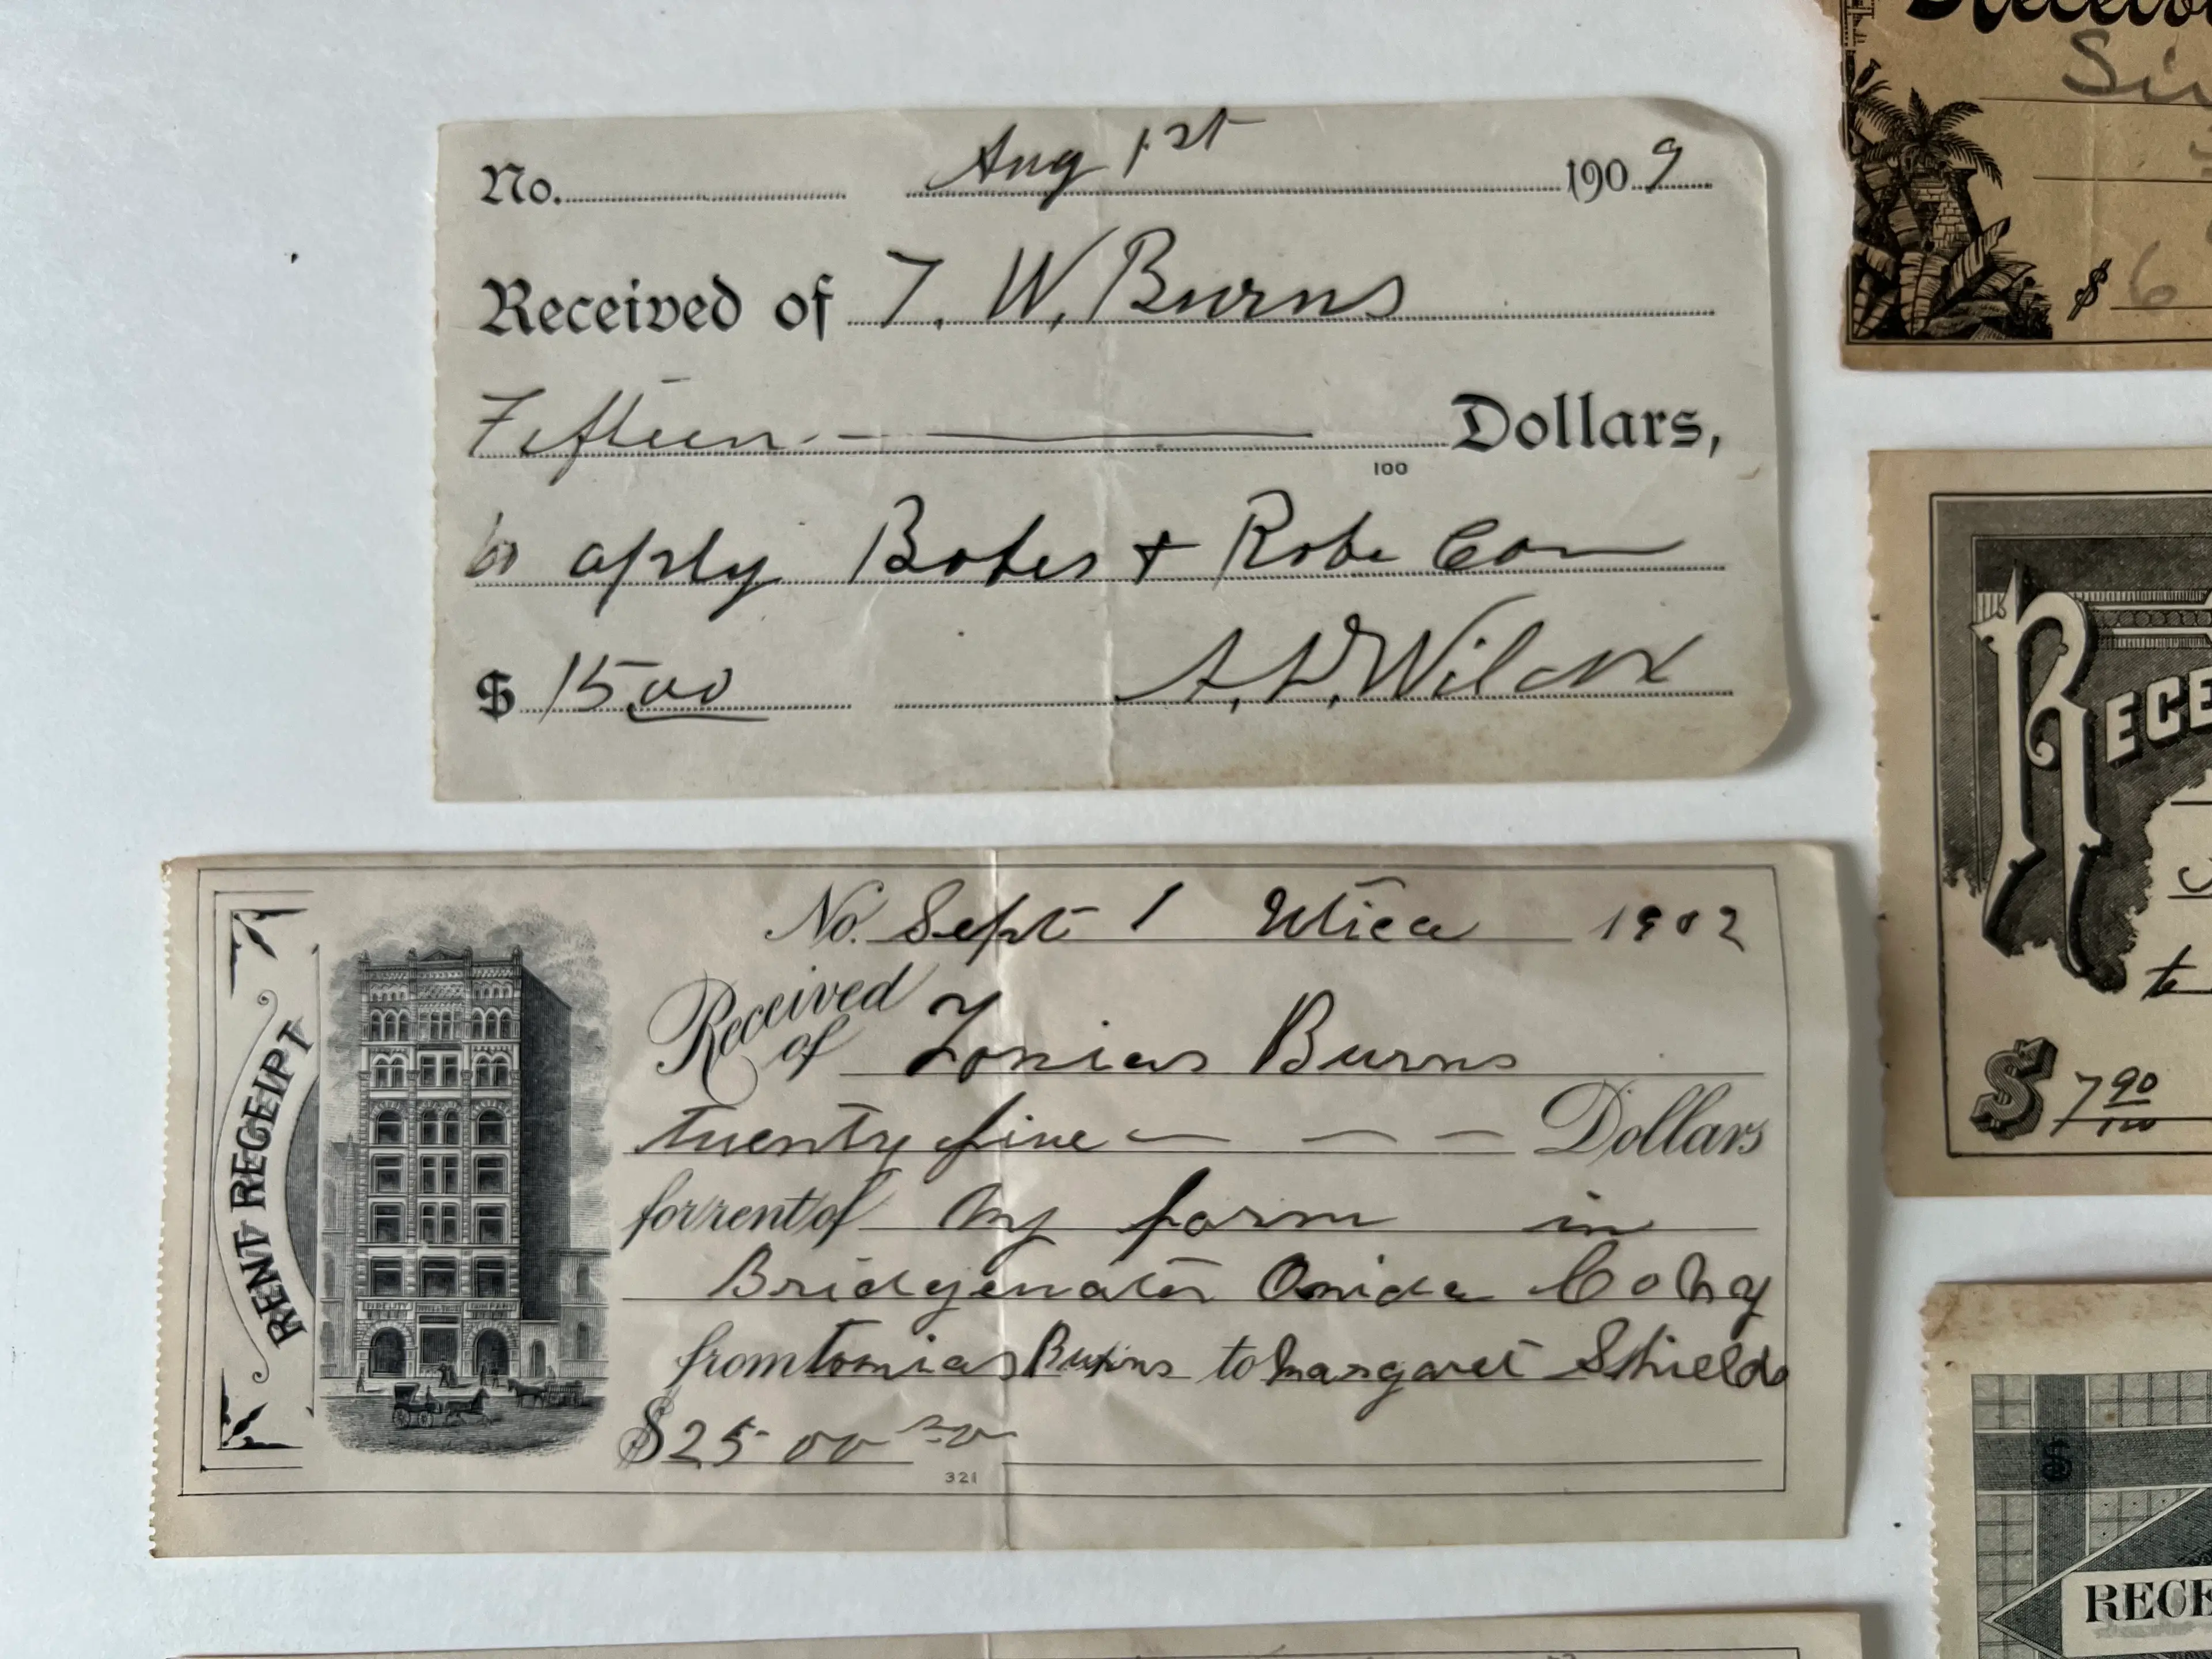 No. Aug 1st 1909
Received of T. W. Burns
Fifteen Dollars,
100
to aply Bates + Robe Com
$ 15 00 Wilcox
No. Sept 1 Utica 1902
Received of Tomias Burns
twenty five Dollars
for rent of My farm in
Bridgewater Onida Co Ny
from tomias Burns to Margaret Shields
$ 25 00
321
RENT RECEIPT
FIDELITY COMPANY
$ 6
to
$ 7 90